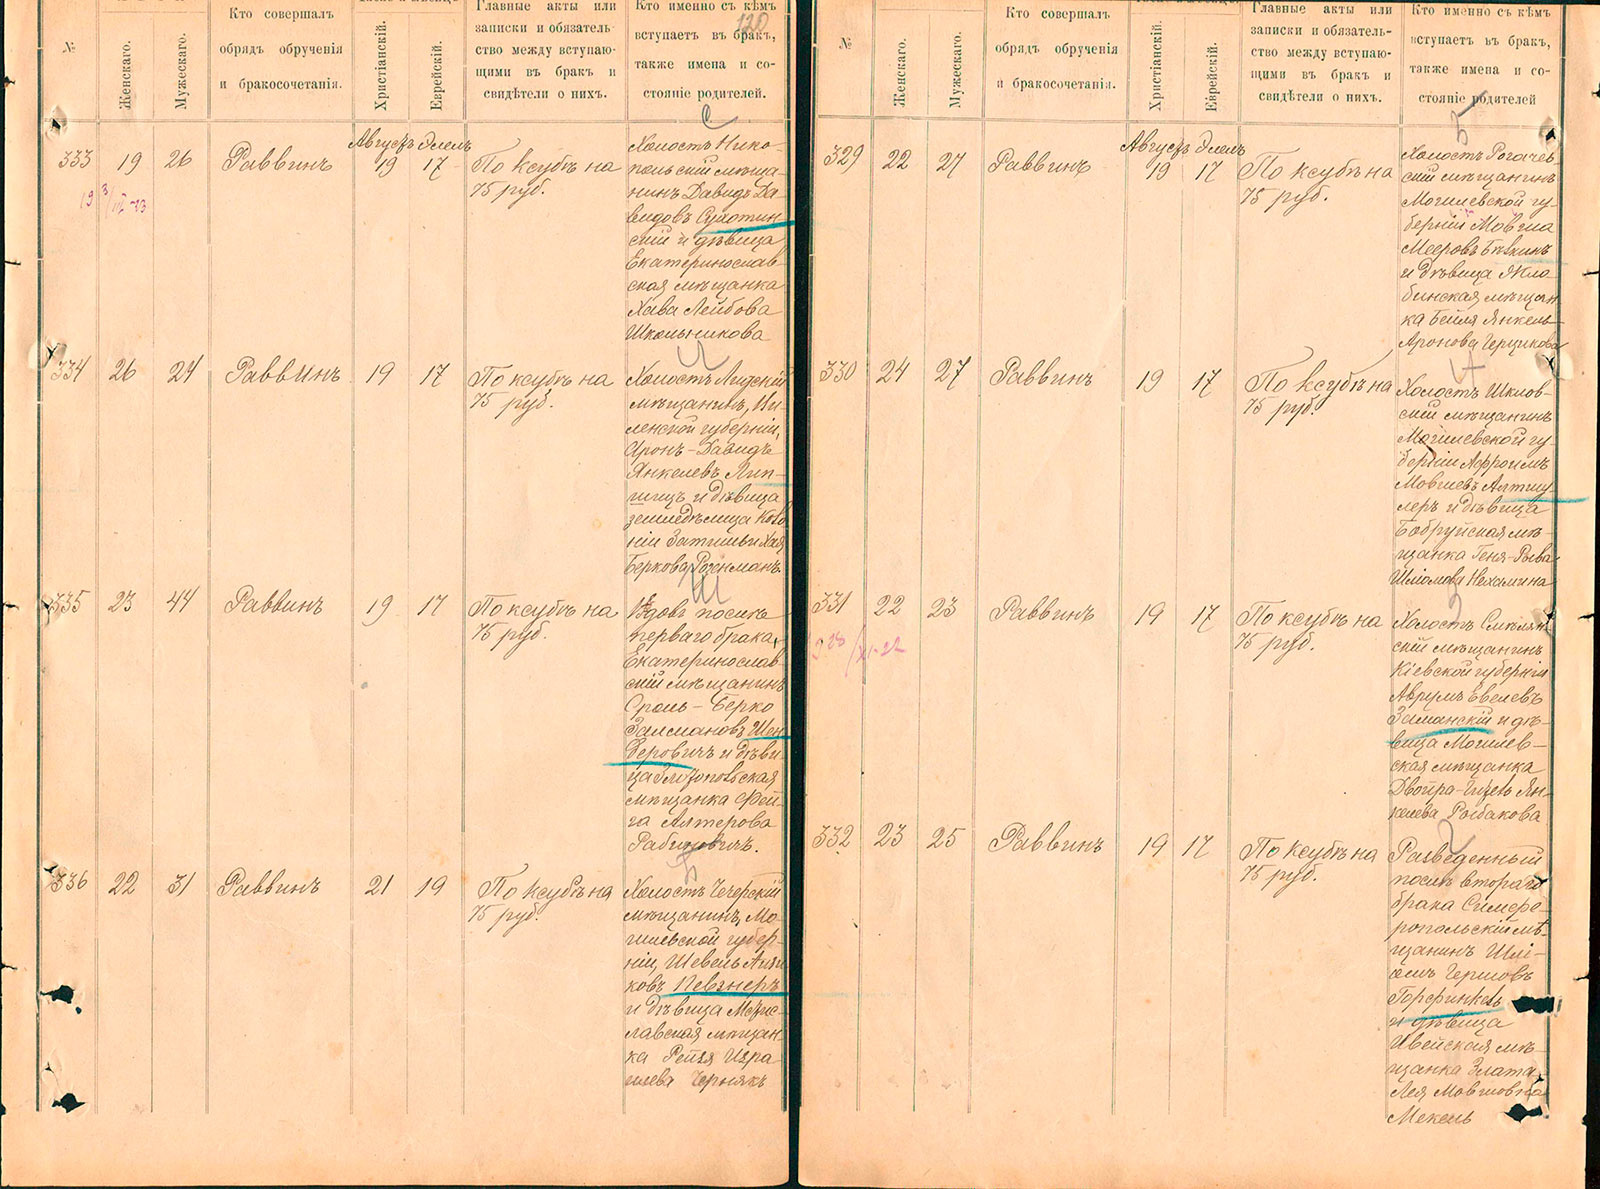 120
№
Женскаго.
Мужескаго.
Кто совершалъ
обрядъ обрученія
и бракосочетанія.
Христіанскій.
Еврейскій.
Главные акты или
записки и обязатель-
ство между вступаю-
щими въ бракъ и
свидѣтели о нихъ.
Кто именно съ кѣмъ
вступаетъ въ бракъ,
также имена и со-
стояніе родителей.
333 19 26 Раввинъ
Августъ Элелъ
19 17
По ксубѣ на
75 руб.
Холостъ Нико-
польскій мѣща-
нинъ Давидъ Да-
видовъ Сухотин-
скій и дѣвица
Екатеринослав-
ская мѣщанка
Хава Лейбова
Школьникова
334 26 24 Раввинъ 19 17
По ксубѣ на
75 руб.
Холостъ Лидскій
мѣщанинъ, Ви-
ленской губерніи,
Аронъ-Давидъ
Янкелевъ Лип-
шицъ и дѣвица
земледѣлица Коло-
ніи Затишья Хая
Беркова Розенманъ
335 23 44 Раввинъ 19 17
По ксубѣ на
75 руб.
Вдовъ послѣ
перваго брака,
Екатеринослав-
скій мѣщанинъ
Сроль-Берко
Залмановъ Шен-
деровичъ и дѣви-
ца Златопольская
мѣщанка Фей-
га Алтерова
Рабиновичъ.
336 22 31 Раввинъ 21 19
По ксубѣ на
75 руб.
Холостъ Чечерскій
мѣщанинъ, Мо-
гилевской губер-
ніи, Шевель
ковъ Певзнеръ
и дѣвица Мстис-
лавская мѣщан-
ка Рейзя Изра-
илева Чернякъ
№
Женскаго.
Мужескаго.
Кто совершалъ
обрядъ обрученія
и бракосочетанія.
Христіанскій.
Еврейскій.
Главные акты или
записки и обязатель-
ство между вступаю-
щими въ бракъ и
свидѣтели о нихъ.
Кто именно съ кѣмъ
вступаетъ въ бракъ,
также имена и со-
стояніе родителей
329 22 27 Раввинъ
Августъ Элелъ
19 17
По ксубѣ на
75 руб.
Холостъ Рогачев-
скій мѣщанинъ
Могилевской гу-
берніи Мовша
Мееровъ Бѣлкинъ
и дѣвица Жло-
бинская мѣщан-
ка Бейля Янкель-
Аронова Герцикова
330 24 27 Раввинъ 19 17
По ксубѣ на
75 руб.
Холостъ Шклов-
скій мѣщанинъ
Могилевской гу-
берніи Афроимъ
Мовшевъ Алтшу-
леръ и дѣвица
Бобруйская мѣ-
щанка Геня-Рыва
Шліомова Нехамина
331 22 23 Раввинъ 19 17
По ксубѣ на
75 руб.
Холостъ Смѣлян-
скій мѣщанинъ
Кіевской губерніи
Аврумъ Евелевъ
Заманскій и дѣ-
вица Могилев-
ская мѣщанка
Двойра-Гиселъ Ян-
келева Рыбакова
332 23 25 Раввинъ 19 17
По ксубѣ на
75 руб.
Разведенный
послѣ втораго
брака Симфе-
ропольскій мѣ-
щанинъ Шлі-
омъ Гершовъ
Горфинкель
и дѣвица
Ивейская мѣ-
щанка Злата-
Лея Мовшовна
Мекель